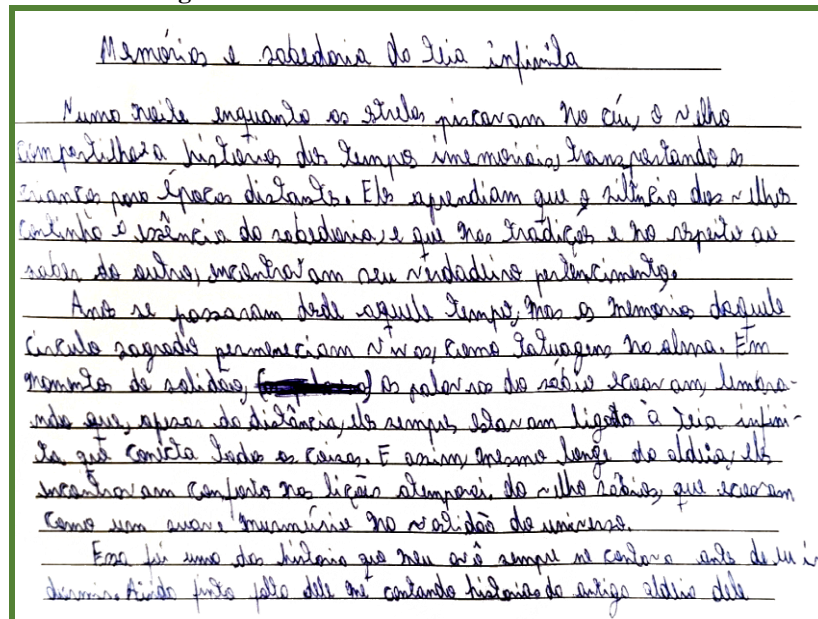 Memórias e sabedoria da teia infinita
Numa noite enquanto as strelas piscavam no céu, o velho
compartilhava historias dos tempos imemoriais, transportando as
crianças para épocas distantes. Eles aprendiam que o silêncio dos velhos
continha a essência da sabedoria, e que nas tradições e no respeito ao
saber do outro, encontravam seu verdadeiro pertencimento.
Anos se passaram desde aquele tempo, mas as memorias daquele
circulo sagrado permeneciam vivas, como tatuagens na alma. Em
momentos de solidão, as palavras do sábio ecoavam, lembra-
ndo que, apesar da distância, eles sempre estavam ligados à teia infini-
ta que conecta todas as coisas. E assim, mesmo longe da aldeia, eles
encontravam conforto nas lições atemporais do velho sábio, que ecoavam
como um suave murmúrio na vastidão do universo.
Essa foi uma das historia que meu avô sempre me contava antes de eu ir
dormir. Ainda sinto falta dele me contando historias da antiga aldeia dele